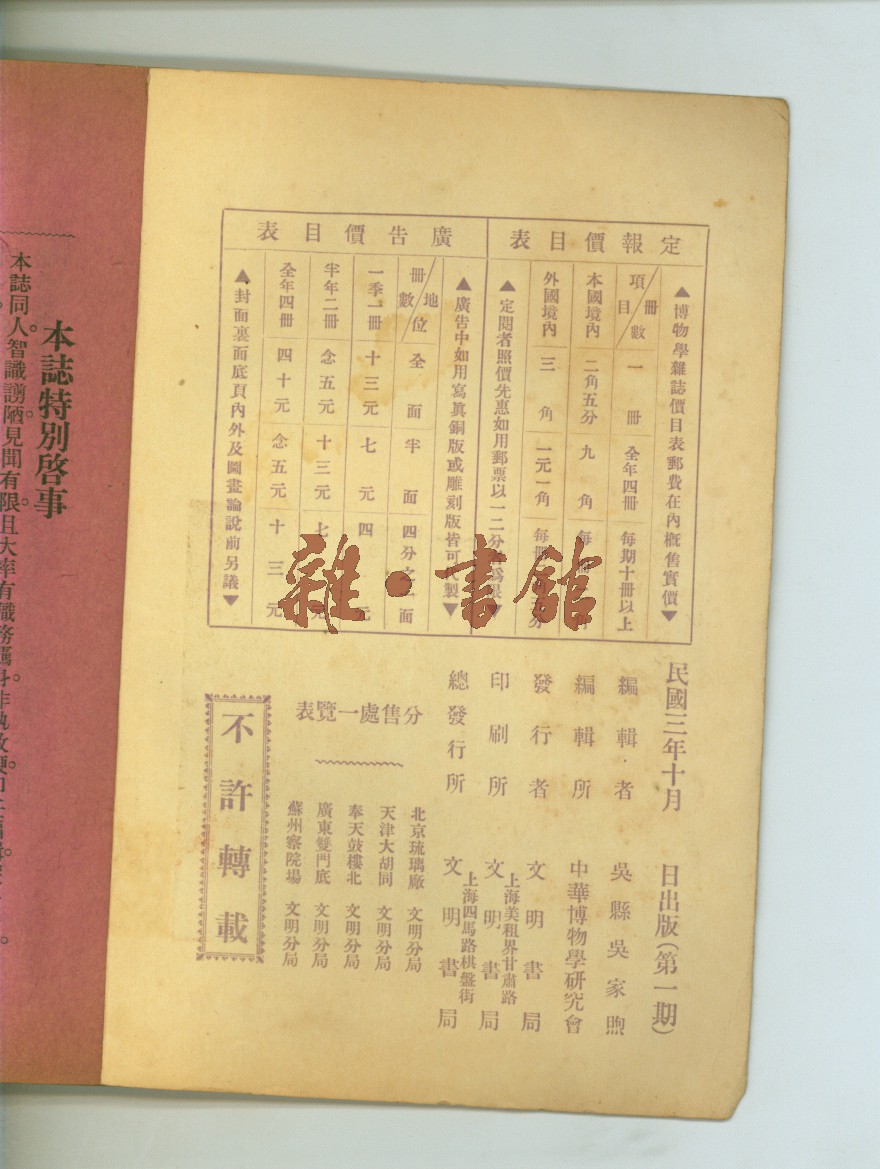 定報價目表
▲博物學雜誌價目表郵費在內概售實價▼
項目 冊數 一冊 全年四冊 每期十冊以上
本國境內 二角五分 九角
外國境內 三角 一元一角
▲定閱者照價先惠如用郵票以一二分
廣告價目表
▲廣告中如用寫眞銅版或雕刻版皆可
冊數 地位 全面 半面 四分之一面
一季一冊 十三元 七元 四元
半年二冊 念五元 十三元 七元
全年四冊 四十元 念五元 十三元
▲封面裏面底頁內外及圖畫論說前另議▼
民國三年十月 日出版(第一期)
編輯者 吳縣吳家煦
編輯所 中華博物學研究會
發行者 文明書局
印刷所 上海美租界甘肅路 文明書局
總發行所 上海四馬路棋盤街 文明書局
分售處一覽表
北京琉璃廠 文明分局
天津大胡同 文明分局
奉天鼓樓北 文明分局
廣東雙門底 文明分局
蘇州察院場 文明分局
不許轉載
雜·書館
本誌特別啓事
本誌同人智識謭陋見聞有限且大率有職務